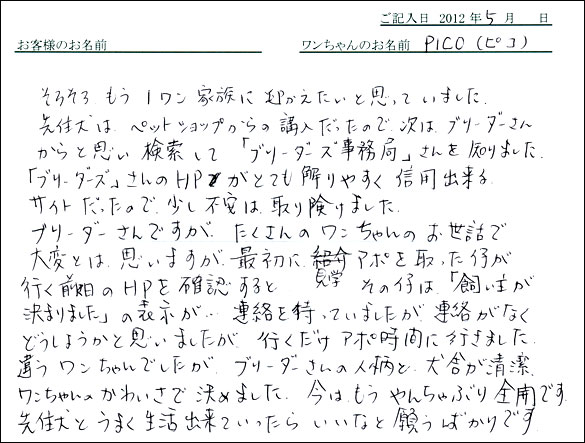 ご記入日 2012年5月 日
お客様のお名前 ワンちゃんのお名前 PICO(ピコ)
そろそろ もう1ワン 家族に むかえたいと思っていました。
先住犬は、ペットショップからの購入だったので、次は、ブリーダーさん
からと思い 検索して 「ブリーダーズ事務局」さんを知りました。
「ブリーダーズ」さんのHPがとても解りやすく 信用出来る
サイトだったので、少し不安は取り険けました。
ブリーダーさんですが、たくさんのワンちゃんのお世話で
大変とは、思いますが、最初に 見学 アポを取った仔が
行く前日のHPを確認すると その仔は「飼い主が
決まりました」の表示が… 連絡を待っていましたが 連絡がなく
どうしようかと思いましたが、行くだけアポ時間に行きました。
違うワンちゃんでしたが、ブリーダーさんの人柄と、犬舎が清潔、
ワンちゃんのかわいさで決めました。今は、もう やんちゃぶり全開です。
先住犬とうまく生活出来ていったらいいなと願うばかりです。